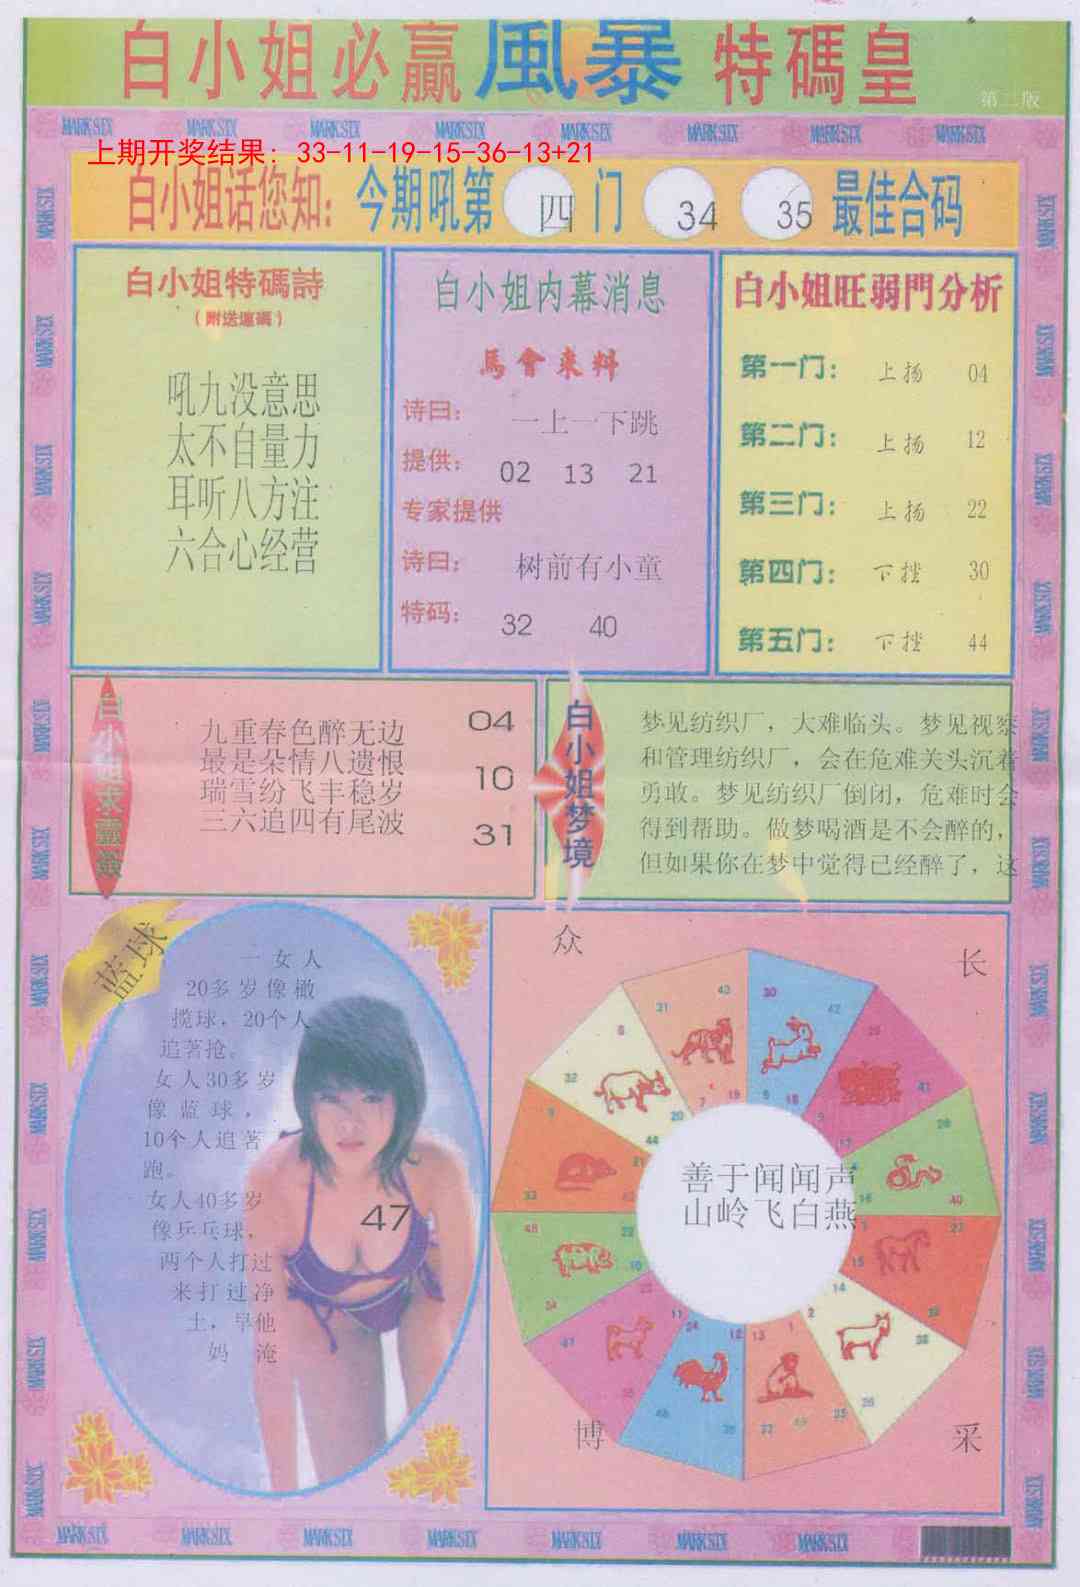 白小姐必赢風暴特碼皇
第二版
MARKSIX MARKSIX MARKSIX MARKSIX MARKSIX MARKSIX MARKSIX MARKSIX
上期开奖结果: 33-11-19-15-36-13+21
白小姐话您知: 今期吼第 四 门 34 35 最佳合码
白小姐特碼詩
吼九没意思
太不自量力
耳听八方注
六合心经营
白小姐内幕消息
馬會來料
诗曰: 一上一下跳
提供: 02 13 21
专家提供
诗曰: 树前有小童
特码: 32 40
白小姐旺弱門分析
第一门: 上扬 04
第二门: 上扬 12
第三门: 上扬 22
第四门: 下挫 30
第五门: 下挫 44
九重春色醉无边
最是朵情八遗恨
瑞雪纷飞丰稳岁
三六追四有尾波
04
10
31
白小姐梦境
梦见纺织厂，大难临头。梦见视察
和管理纺织厂，会在危难关头沉着
勇敢。梦见纺织厂倒闭，危难时会
得到帮助。做梦喝酒是不会醉的，
但如果你在梦中觉得已经醉了，这
蓝球
一女人
20多岁像橄
揽球，20个人
追著抢。
女人30多岁
像蓝球，
10个人追著
跑。
女人40多岁
像乒乓球，
两个人打过
来打过净
土，早他
妈 淹
47
众
长
善于闻闻声
山岭飞白燕
博
采
MARKSIX MARKSIX MARKSIX MARKSIX MARKSIX MARKSIX MARKSIX